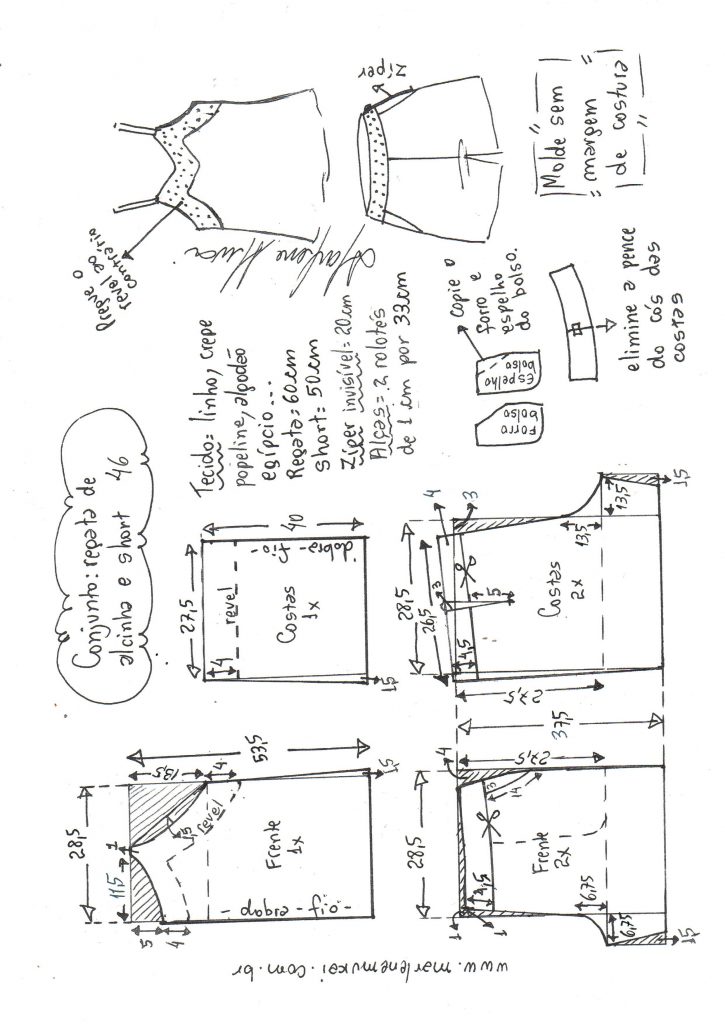 Conjunto: regata de
alcinha e short 46
Tecido: linho, crepe
popeline, algodão
egípcio...
Regata: 60cm
short: 50cm
Zíper invisível = 20cm
Alças = 2 rolotês
de 1cm por 33cm
Pregue o
revel ao
contrário
Marlene Mukai
Zíper
"Molde sem
= margem =
de costura
"
Copie o
forro e
espelho
do bolso.
Espelho
bolso
Forro
bolso
elimine a pence
do cós das
costas
28,5
11,5
1
13,5
4
53,5
5
4
15
revel
Frente
1x
dobra-fio
1,5
27,5
4
revel
Costas
1x
40
dobra-fio-
1,5
28,5
4
27,5
37,5
3
14
Frente
2x
4,5
1
1
6,75
6,75
1,5
28,5
26,5
4
3
3
4,5
5
27,5
Costas
2x
13,5
13,5
1,5
www.marlenemukai.com.br